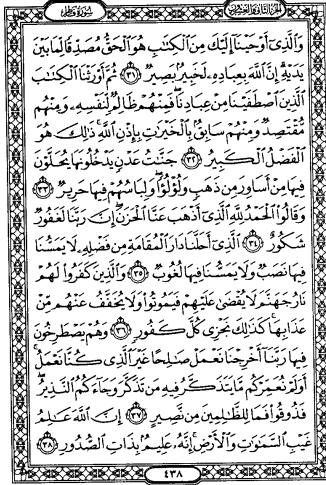 الجزء الثاني والعشرون سورة فاطر
وَالَّذِي أَوْحَيْنَا إِلَيْكَ مِنَ الْكِتَابِ هُوَ الْحَقُّ مُصَدِّقًا لِمَا بَيْنَ
يَدَيْهِ إِنَّ اللَّهَ بِعِبَادِهِ لَخَبِيرٌ بَصِيرٌ ٣١ ثُمَّ أَوْرَثْنَا الْكِتَابَ
الَّذِينَ اصْطَفَيْنَا مِنْ عِبَادِنَا فَمِنْهُمْ ظَالِمٌ لِنَفْسِهِ وَمِنْهُمْ
مُقْتَصِدٌ وَمِنْهُمْ سَابِقٌ بِالْخَيْرَاتِ بِإِذْنِ اللَّهِ ذَلِكَ هُوَ
الْفَضْلُ الْكَبِيرُ ٣٢ جَنَّاتُ عَدْنٍ يَدْخُلُونَهَا يُحَلَّوْنَ
فِيهَا مِنْ أَسَاوِرَ مِنْ ذَهَبٍ وَلُؤْلُؤًا وَلِبَاسُهُمْ فِيهَا حَرِيرٌ ٣٣
وَقَالُوا الْحَمْدُ لِلَّهِ الَّذِي أَذْهَبَ عَنَّا الْحَزَنَ إِنَّ رَبَّنَا لَغَفُورٌ
شَكُورٌ ٣٤ الَّذِي أَحَلَّنَا دَارَ الْمُقَامَةِ مِنْ فَضْلِهِ لَا يَمَسُّنَا
فِيهَا نَصَبٌ وَلَا يَمَسُّنَا فِيهَا لُغُوبٌ ٣٥ وَالَّذِينَ كَفَرُوا لَهُمْ
نَارُ جَهَنَّمَ لَا يُقْضَى عَلَيْهِمْ فَيَمُوتُوا وَلَا يُخَفَّفُ عَنْهُمْ مِنْ
عَذَابِهَا كَذَلِكَ نَجْزِي كُلَّ كَفُورٍ ٣٦ وَهُمْ يَصْطَرِخُونَ
فِيهَا رَبَّنَا أَخْرِجْنَا نَعْمَلْ صَالِحًا غَيْرَ الَّذِي كُنَّا نَعْمَلُ
أَوَلَمْ نُعَمِّرْكُمْ مَا يَتَذَكَّرُ فِيهِ مَنْ تَذَكَّرَ وَجَاءَكُمُ النَّذِيرُ
فَذُوقُوا فَمَا لِلظَّالِمِينَ مِنْ نَصِيرٍ ٣٧ إِنَّ اللَّهَ عَالِمُ
غَيْبِ السَّمَاوَاتِ وَالْأَرْضِ إِنَّهُ عَلِيمٌ بِذَاتِ الصُّدُورِ ٣٨
٤٣٨